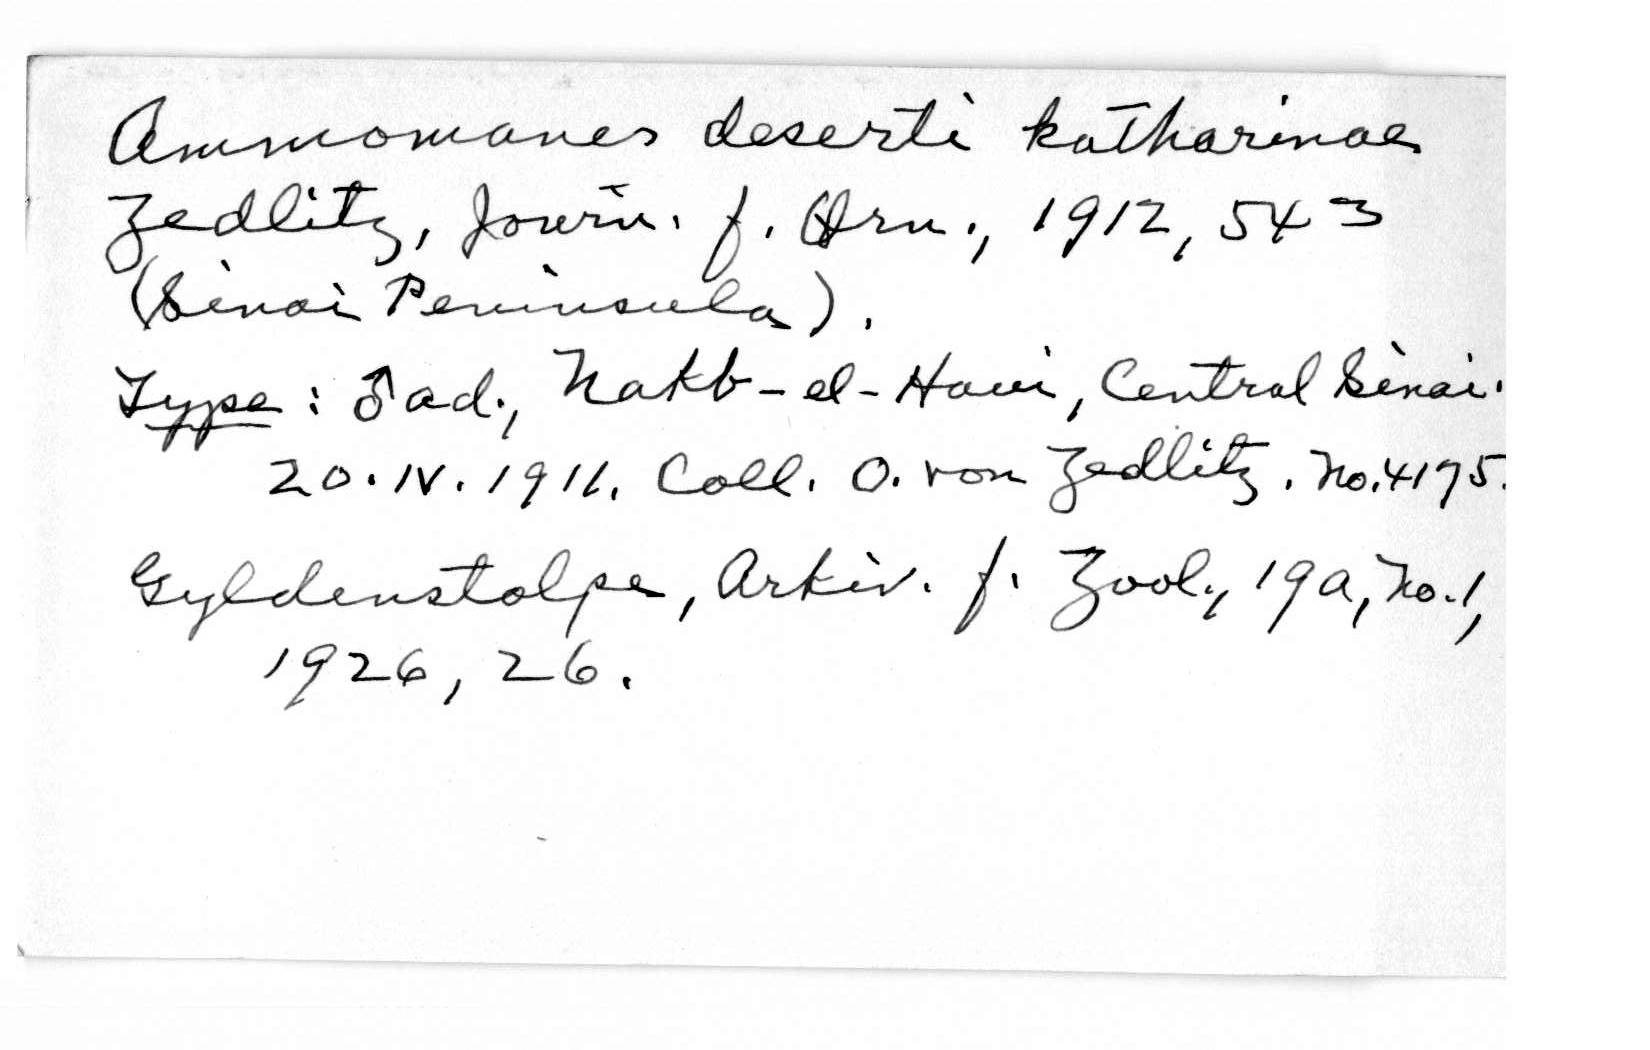 Ammomanes deserti katharinae
Zedlitz, Journ. f. Orn., 1912, 543
(Sinai Peninsula).
Type: ♂ ad., Nakb-el-Hawi, Central Sinai.
20.IV.1911. Coll. O. von Zedlitz. No. 4175.
Gyldenstolpe, Arkiv. f. Zool., 19A, No. 1,
1926, 26.